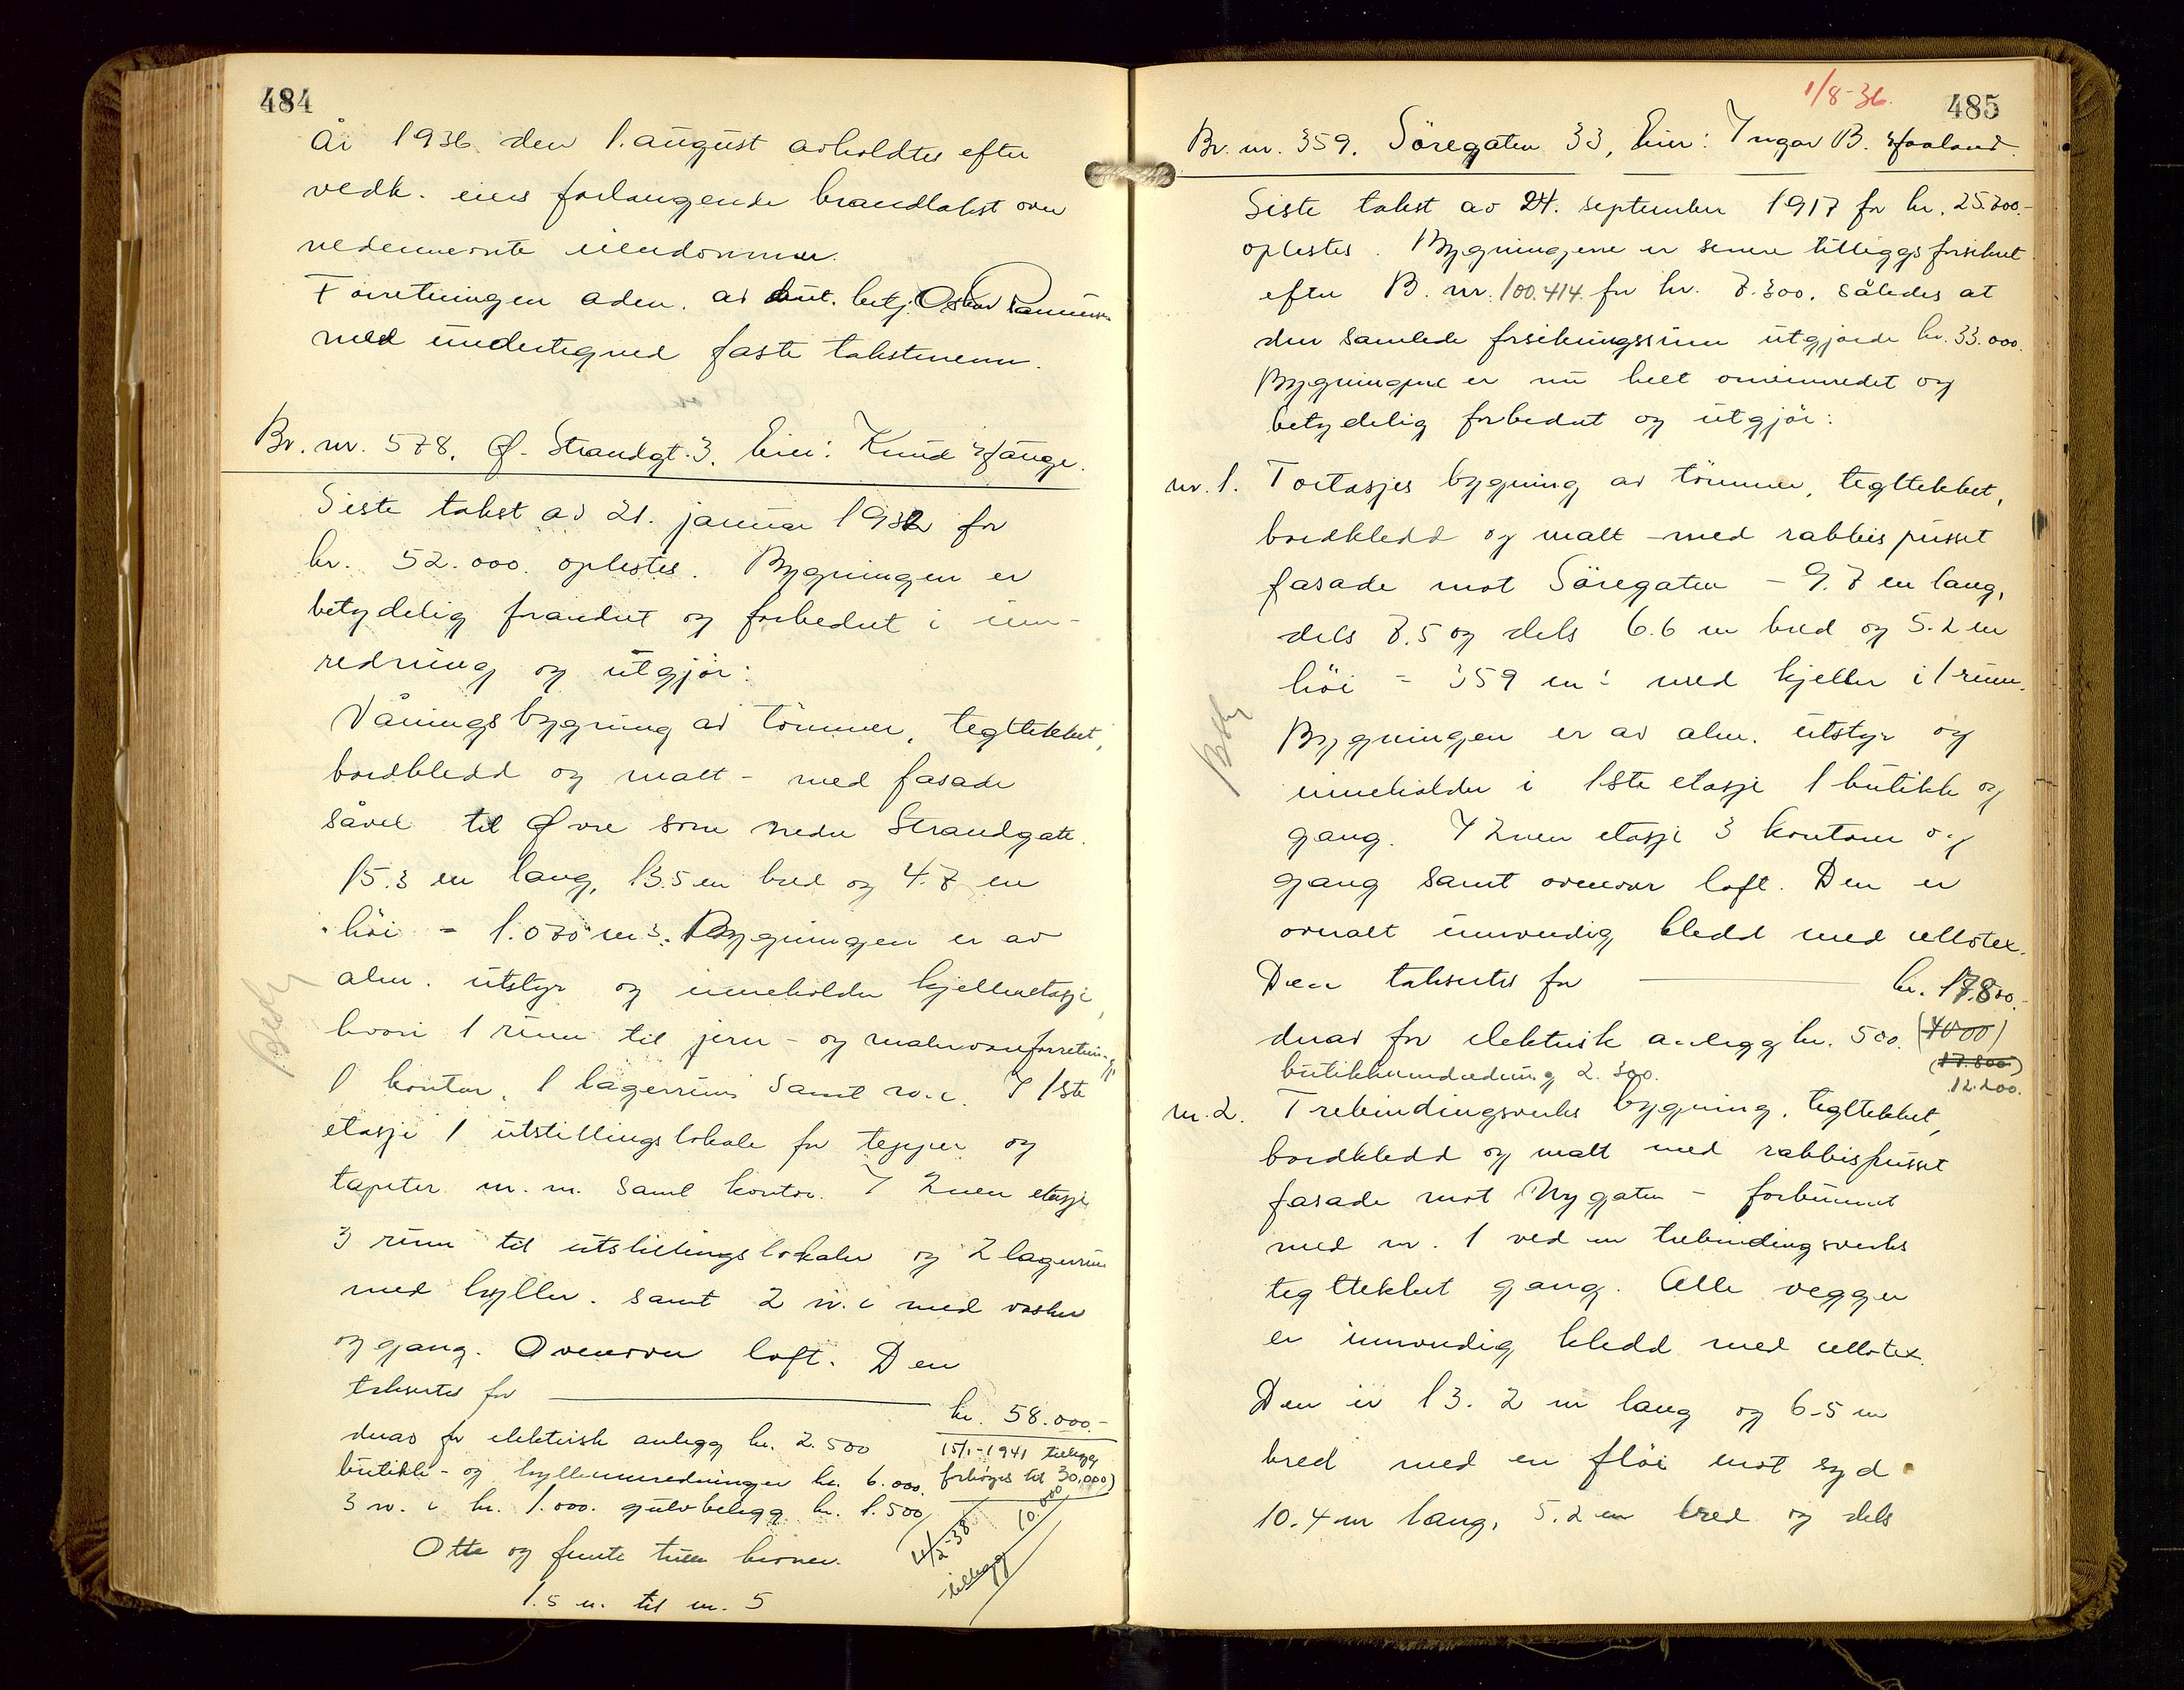 484
År 1936 den 1. august avholdtes efter
vedk. eies forlangende brandtakst over
nedennevnte eiendommer.
Forretningen adm. av aut. betj. Oskar Rasmussen
med undertegned faste takstmenn.
Br. nr. 578. Ø. Strandgt. 3. Eier: Knud Hauge.
Siste takst av 21. januar 1932 for
kr. 52.000. oplestes. Bygningen er
betydelig forandret og forbedret i inn-
redning og utgjør:
Våningsbygning av tömmer, tegltekket,
bordkledd og malt - med fasade
såvel til Øvre som nedre Strandgate.
15.3 m lang, 13.5 m bred og 4.7 m
höi = 1.070 m3. Bygningen er av
alm. utstyr og inneholder kjelleretasje,
hvori 1 rum til jern- og malervareforretning,
1 kontor, 1 lagerrum samt w.c. I 1ste
etasje 1 utstillingslokale for tepper og
tapeter m.m. samt kontor. I 2nen etasje
3 rum til utstillingslokaler og 2 lagerrum
med hyller. samt 2 w.c med vasker
og gang. Ovenover loft. Den
takseres for kr. 58.000.-
derav for elektrisk anlegg kr. 2.500
butikk- og hylleinnredninger kr. 6.000.
3 w. c kr. 1.000. gulvbelegg kr. 1.500
15/1-1941 tillegg
forhöyes til 30,000)
4/2-38
tillegg 10.000
Otte og femti tusen kroner.
1.5 m. til nr. 5
Bedy
1/8-36.
485
Br. nr. 359. Söregaten 33, Eier: Ingar B. Haaland.
Siste takst av 24. september 1917 for kr. 25.700.-
oplestes. Bygningene er senere tilleggsforsikret
efter B. nr. 100.414 for kr. 7.300. således at
den samlede forsikringssum utgjorde kr. 33.000.
Bygningene er nu helt ominnredet og
betydelig forbedret og utgjör:
nr. 1. Toetasjes bygning av tömmer, tegltekket,
bordkledd og malt - med rabbispusset
fasade mot Söregaten - 9.7 m lang,
dels 7.5 og dels 6.6 m bred og 5.2 m
höi = 359 m3 med kjeller i 1 rum.
Bygningen er av alm. utstyr og
inneholder i 1ste etasje 1 butikk og
gang. I 2nen etasje 3 kontorer og
gang samt ovenover loft. Den er
overalt innvendig kledd med cellotex.
Den takseres for kr. 17.800.-
derav for elektrisk anlegg kr. 500. (4000)
butikkinnredning 2.300. (17.800)
12.200.
nr. 2. Trebindingsverks bygning, tegltekket,
bordkledd og malt med rabbispusset
fasade mot Nygaten - forbunnet
med nr. 1 ved en trebindingsverks
tegltekket gang. Alle vegger
er innvendig kledd med cellotex.
Den er 13.2 m lang og 6.5 m
bred med en flöi mot syd
10.4 m lang, 5.2 m bred og dels